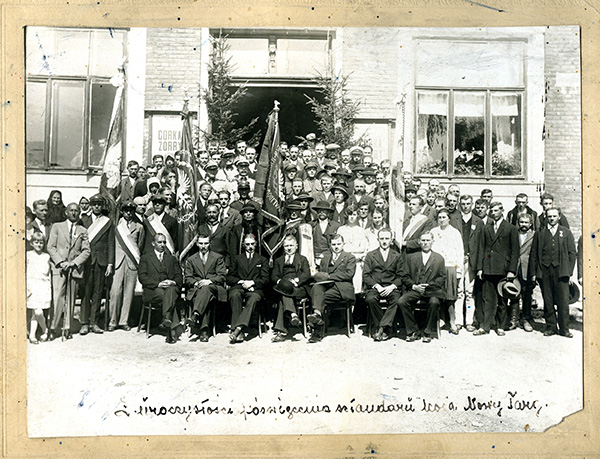 GORKA
ZORRY
Z uroczystości poświęcenia sztandaru koła Nowy Targ.